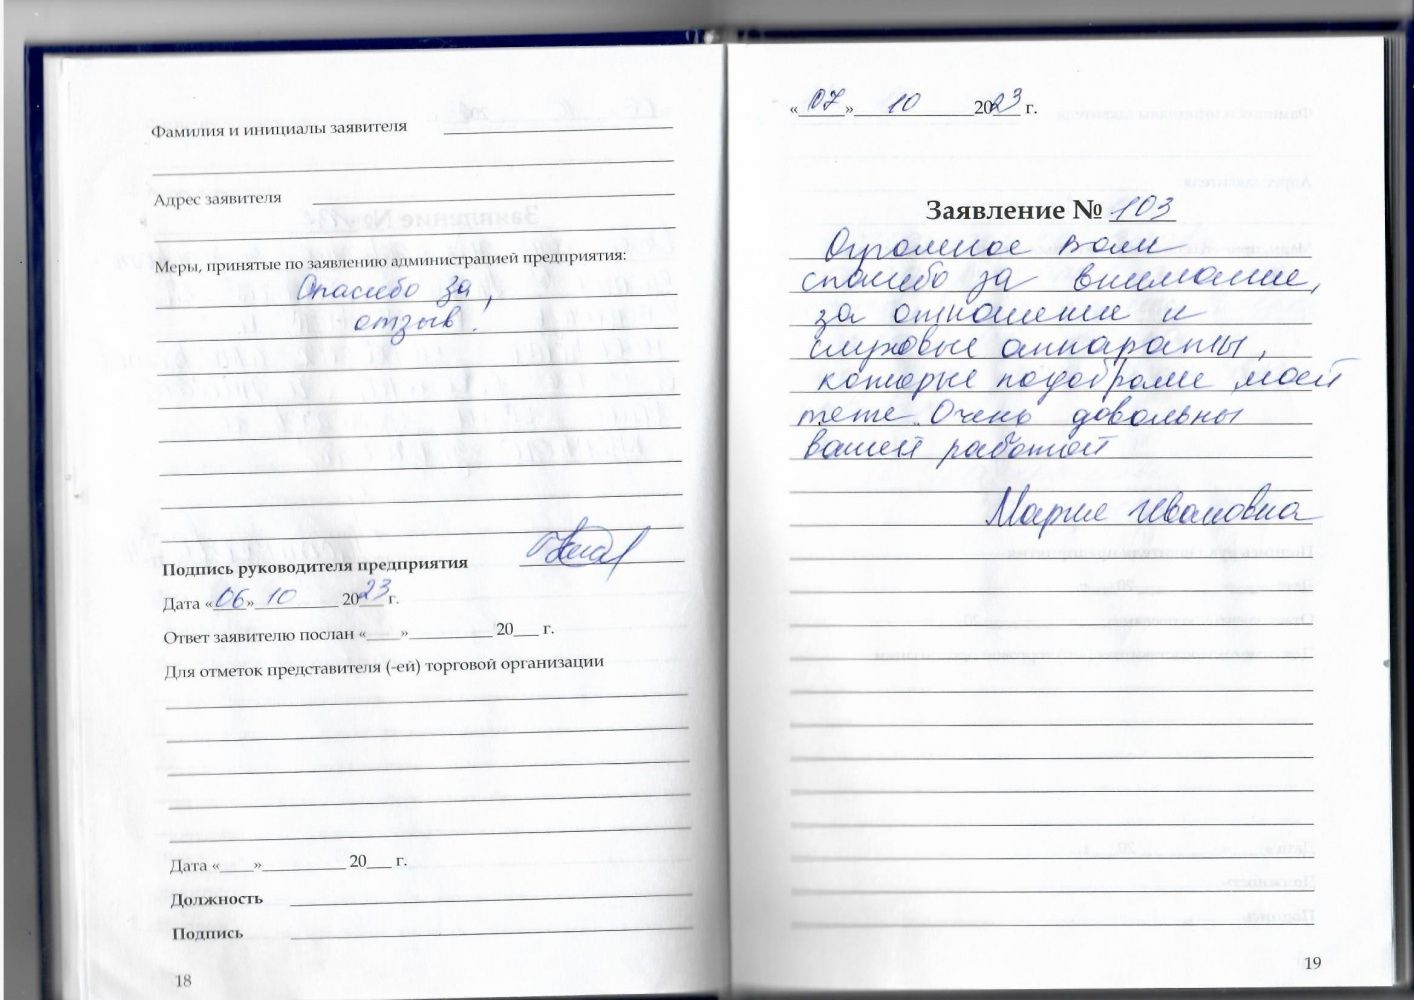 Фамилия и инициалы заявителя
Адрес заявителя
Меры, принятые по заявлению администрацией предприятия:
Спасибо за
отзыв!
Подпись руководителя предприятия
Дата «06» 10 2023 г.
Ответ заявителю послан «    »            20    г.
Для отметок представителя (-ей) торговой организации
Дата «    »            20    г.
Должность
Подпись
18
«07» 10 2023 г.
Заявление № 103
Огромное Вам
спасибо за внимание,
за отношение и
слуховые аппараты,
которые подобрали моей
тете. Очень довольны
вашей работой
Марие Ивановна
19